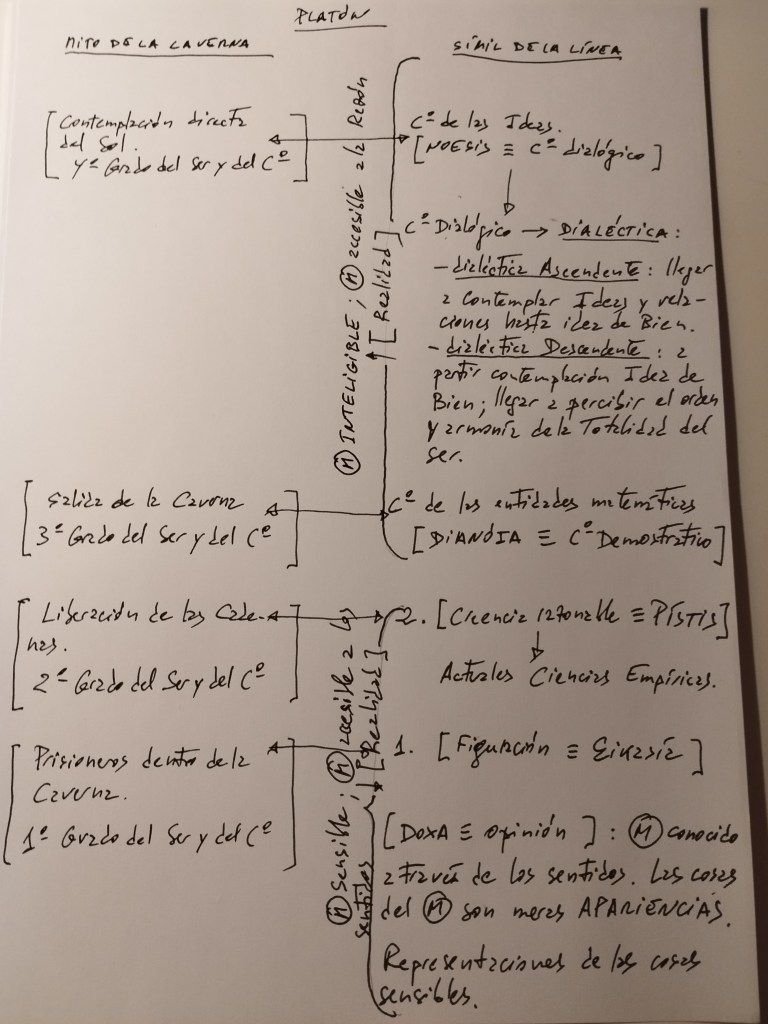 PLATÓN
MITO DE LA CAVERNA
SÍMIL DE LA LÍNEA
[Contemplación directa
del Sol.
4º Grado del Ser y del Cº]
Cº de las Ideas.
[NOESIS ≡ Cº dialógico]
Cº Dialógico → DIALÉCTICA:
- dialéctica Ascendente: llegar
a contemplar Ideas y rela-
ciones hasta idea de Bien.
- dialéctica Descendente: a
partir contemplación Idea de
Bien; llegar a percibir el orden
y armonía de la Totalidad del
ser.
Ⓜ INTELIGIBLE; Ⓜ accesible a la Razón
[Realidad]
[Salida de la Caverna
3º Grado del Ser y del Cº]
Cº de las entidades matemáticas
[DIANOIA ≡ Cº Demostrativo]
[Liberación de las Cade-
nas.
2º Grado del Ser y del Cº]
2. [Creencia razonable ≡ PÍSTIS]
Actuales Ciencias Empíricas.
Ⓜ Sensible; Ⓜ accesible a los
sentidos
[Realidad]
[Prisioneros dentro de la
Caverna.
1º Grado del Ser y del Cº]
1. [Figuración ≡ Eikasía]
[DOXA ≡ opinión]: Ⓜ conocido
a través de los sentidos. Las cosas
del Ⓜ son meras APARIENCIAS.
Representaciones de las cosas
sensibles.